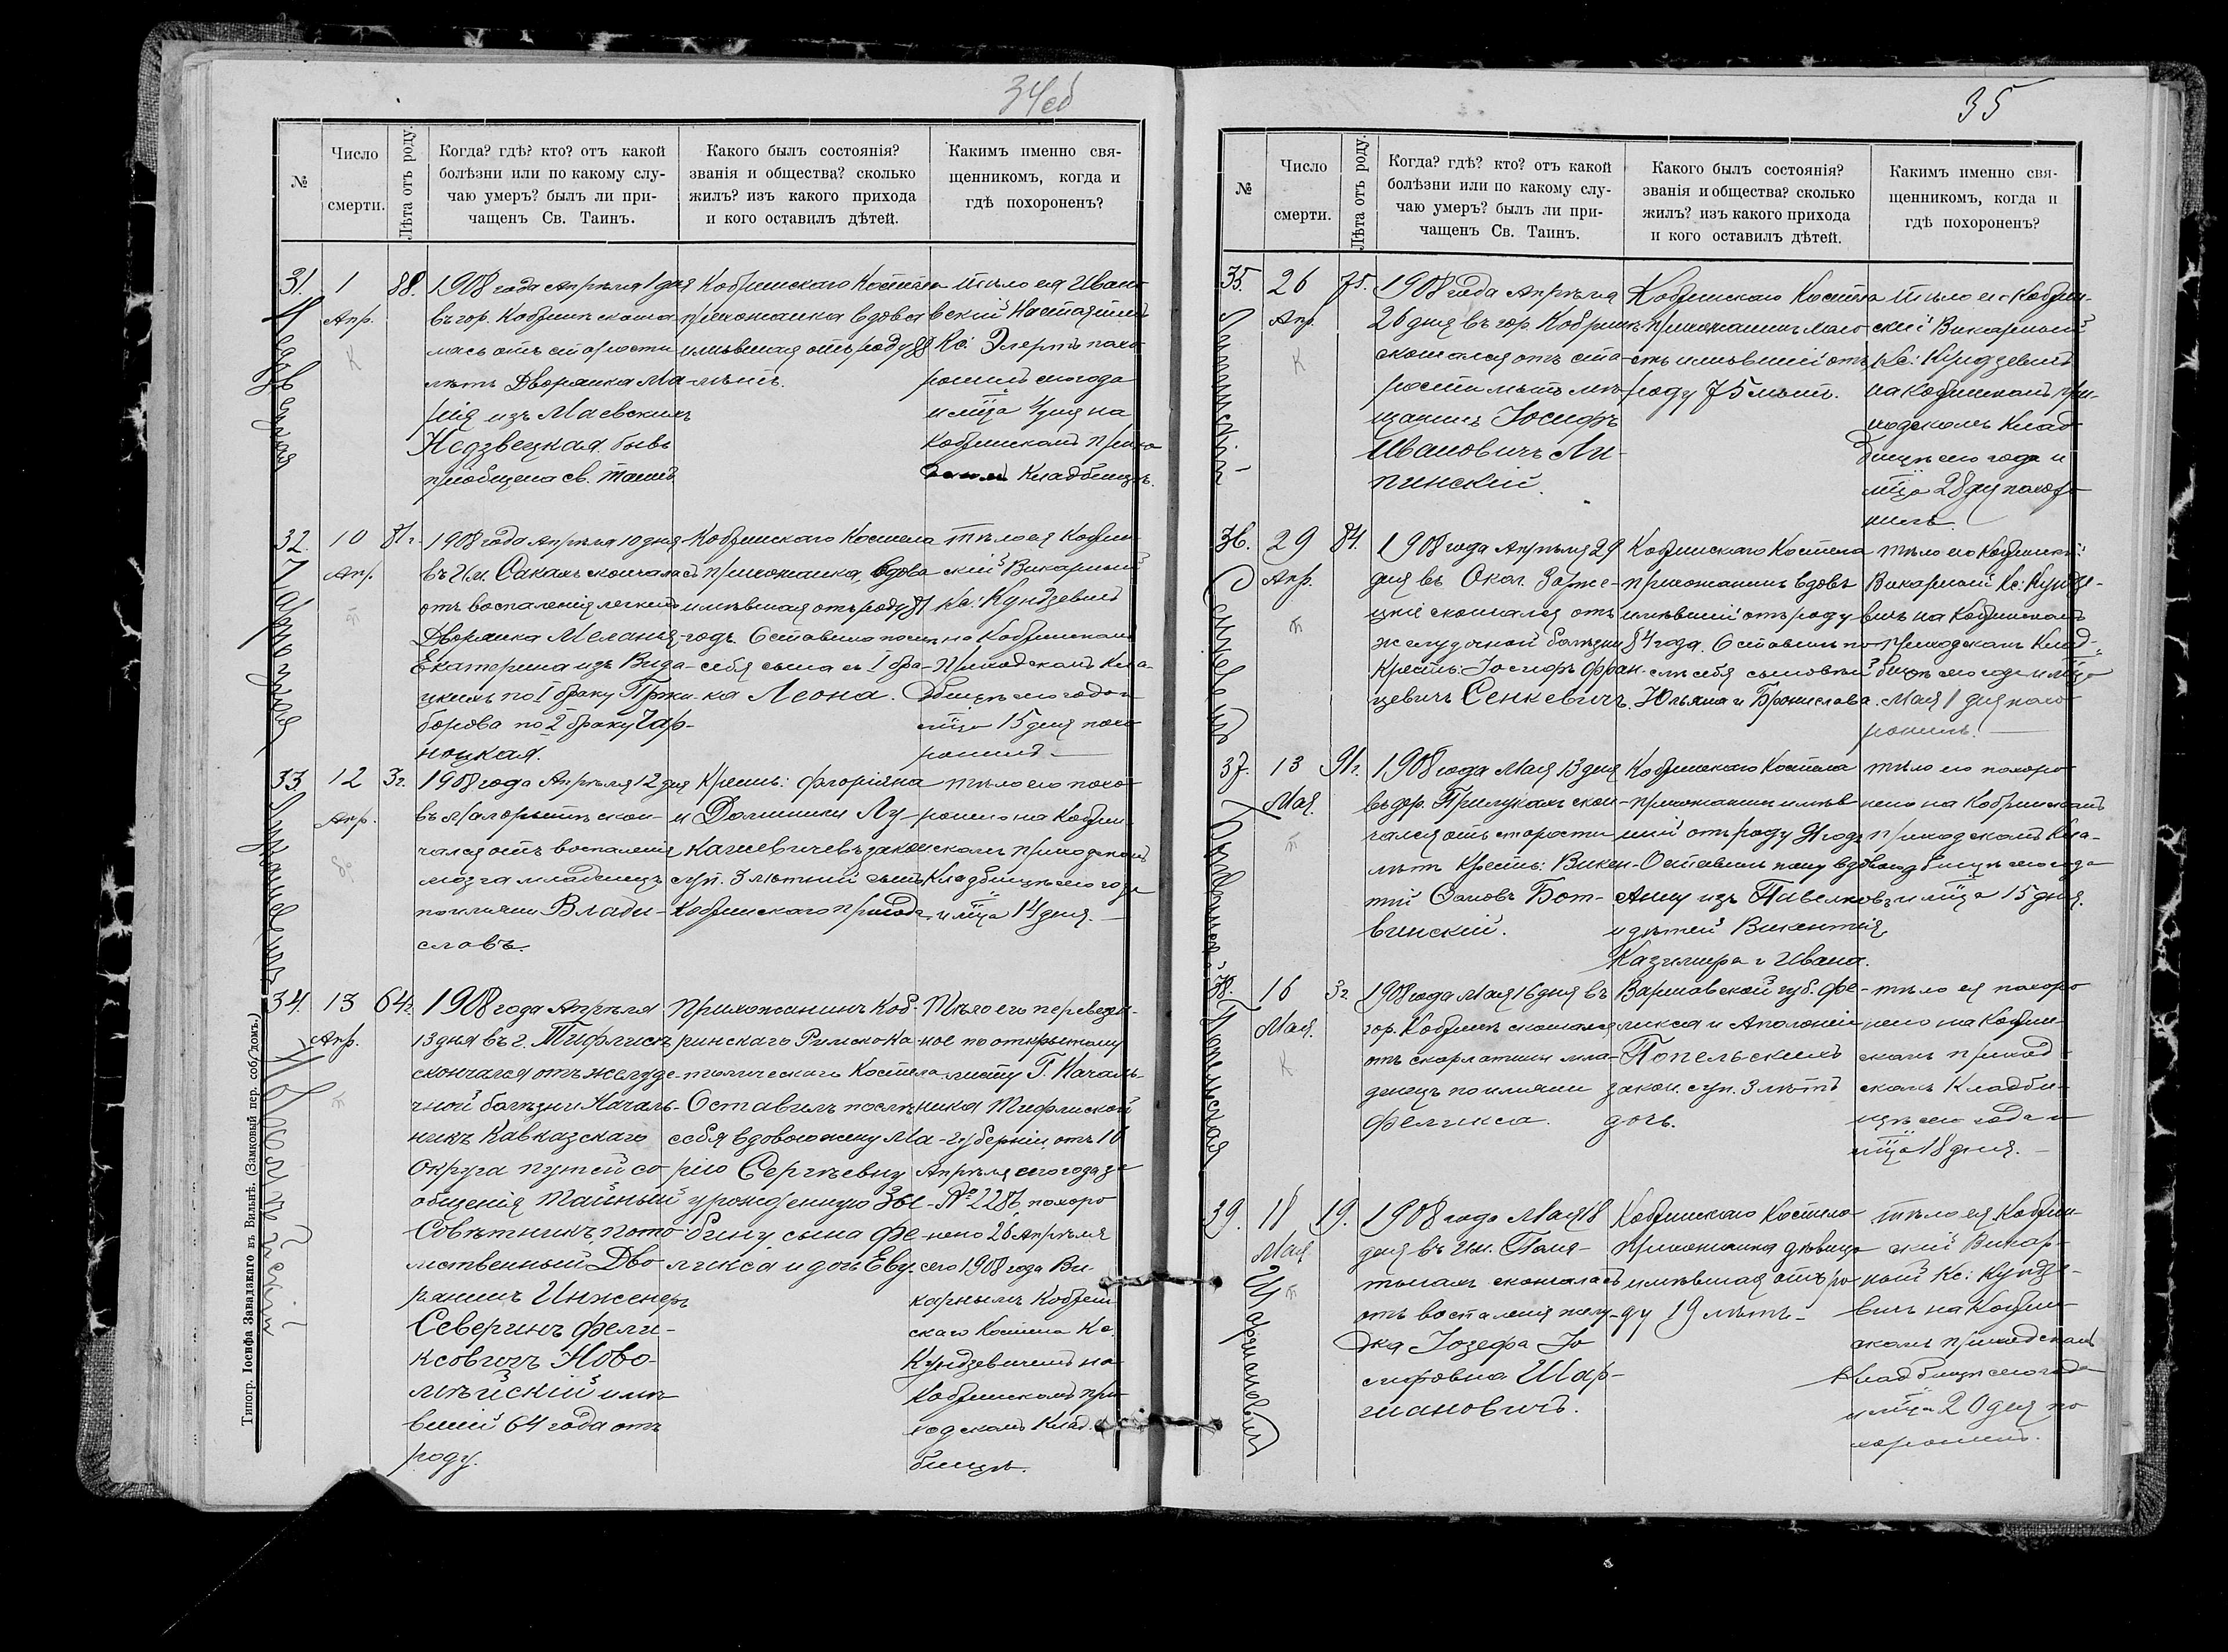 34об
№
Число
смерти.
Лѣта отъ роду.
Когда? гдѣ? кто? отъ какой
болѣзни или по какому слу-
чаю умеръ? былъ ли при-
чащенъ Св. Таинъ.
Какого былъ состоянія?
званія и общества? сколько
жилъ? изъ какого прихода
и кого оставилъ дѣтей.
Какимъ именно свя-
щенникомъ, когда и
гдѣ похороненъ?
31.
Недзвецкая
1
Апр.
К
88.
1908 года Апрѣля 1 дня
въ гор. Кобринѣ сконча-
лась отъ старости
лѣтъ Дворянка Ма-
рія изъ Маевскихъ
Недзвецкая бывъ
пріобщена св. таинъ
Кобринскаго Костела
прихожанка вдова
имѣвшая отъ роду 88
лѣтъ.
тѣло ея Ивано
вскій Настоятель
Кс: Элертъ похо
ронилъ сего года
и мѣца 4 дня на
Кобринскомъ прихо
Кладбищѣ.
32.
Чарноцкая
10
Апр.
81 г.
1908 года Апрѣля 10 дня
въ Им. Сакахъ скончалась
отъ воспаленія легкихъ
Дворянка Меланья-
Екатерина изъ Вида-
цкихъ по I браку Пржи-
борова по 2 браку Чар-
ноцкая.
Кобринскаго Костела
прихожанка, вдова
имѣвшая отъ роду 81
годъ. Оставила послѣ
себя сына съ I бра-
ка Леона.
тѣло ея Кобрин
скій Викарный
Кс: Кундзевичъ
на Кобринскомъ
Приходскомъ Кла-
дбищѣ сего года и
мѣца 15 дня похо
ронилъ
33.
Лукашевичъ
12
Апр.
3 г.
1908 года Апрѣля 12 дня
въ Малоритѣ скон-
чался отъ воспаленія
мозга младенецъ
по имени Влади-
славъ.
Крешь: Флоріяна
и Доминики Лу-
кашевичевъ закон
суп. 3 лѣтній сынъ
Кобринскаго прихода
тѣло его похо
ронено на Кобрин
скомъ приходскомъ
Кладбищѣ сего года
и мѣца 14 дня.
34.
Новомѣйскій
13
Апр.
64 г.
1908 года Апрѣля
13 дня въ г. Тифлисѣ
скончался отъ желуде-
чной болѣзни Началь-
никъ Кавказскаго
Округа путей со
общенія Тайный
Совѣтникъ пото
мственный Дво
рянинъ Инженеръ
Северинъ Фели-
ксовичъ Ново-
мѣйскій имѣ
вшій 64 года отъ
роду.
Прихожанинъ Коб-
ринскаго Римско Ка
толическаго Костела
Оставилъ послѣ
себя вдовою жену Ма-
рію Сергѣевну
урожденную Зы-
бину сына Фе
ликса и дочь Еву.
Тѣло его переведен-
ное по открытому
листу Г. Началь-
ника Тифлиской
губерніи, отъ 16
Апрѣля сего года за
№ 2286, похоро
нено 26 Апрѣля
сего 1908 года Ви
карнымъ Кобрин
скаго Костела Кс.
Кундзевичемъ на
Кобринскомъ при
ходскомъ Клад-
бищѣ.
Типогр. Іосифа Завадзкаго въ Вильнѣ, (Замковый пер. соб. домъ.)
35
№
Число
смерти.
Лѣта отъ роду.
Когда? гдѣ? кто? отъ какой
болѣзни или по какому слу-
чаю умеръ? былъ ли при-
чащенъ Св. Таинъ.
Какого былъ состоянія?
званія и общества? сколько
жилъ? изъ какого прихода
и кого оставилъ дѣтей.
Какимъ именно свя-
щенникомъ, когда и
гдѣ похороненъ?
35.
Липинскій
26
Апр.
К
75.
1908 года Апрѣля
26 дня въ гор. Кобринѣ
скончался отъ ста-
рости лѣтъ мѣ-
щанинъ Іосифъ
Ивановичъ Ли-
пинскій.
Кобринскаго Костела
прихожанинъ холо
стъ имѣвшій отъ
роду 75 лѣтъ.
тѣло его Кобрин-
скій Викарный
Кс: Кундзевичъ
на Кобринскомъ при-
ходскомъ Клад
бищѣ сего года и
мѣца 28 дня похоро
нилъ
36.
Сенкевичъ
29
Апр.
84.
1908 года Апрѣля 29
дня въ Окол. Зарже-
цкіе скончался отъ
желудочной болѣзни
Крешь: Іосифъ Фран
цевичъ Сенкевичъ.
Кобринскаго Костела
прихожанинъ вдовъ
имѣвшій отъ роду
84 года. Оставилъ по-
слѣ себя сыновей
Юльяна и Бронислава.
тѣло его Кобринскій
Викарный Кс: Кундзе-
вичъ на Кобринскомъ
приходскомъ Клад-
бищѣ сего года и мѣца
Мая 1 дня похо
ронилъ.
37.
13
Мая.
91 г.
1908 года Мая 13 дня
въ дер. Прилукахъ скон-
чался отъ старости
лѣтъ Крешь: Викен-
тій Бот-
винскій.
Кобринскаго Костела
прихожанинъ имѣв
шій отъ роду 91 годъ
Оставилъ жену вдовою
Анну изъ Пивелковъ
и дѣтей Викентія,
Казимира и Ивана.
тѣло его похоро
нено на Кобринскомъ
приходскомъ Кла-
дбищѣ сего года
и мѣца 15 дня.
38.
Попельская
16
Мая.
К
3 г.
1908 года Мая 16 дня въ
гор. Кобринѣ скончался
отъ скарлатины мла-
денецъ по имени
Фелиция.
Варшавской губ. Фе-
ликса и Аполоніи
Попельскихъ
закон. суп. 3 лѣтъ
дочь.
тѣло ея похоро
нено на Кобрин
скомъ приход
скомъ Кладби-
щѣ сего года и
мѣца 18 дня.
39.
Шаршановичъ
18
Мая
19.
1908 года Мая 18
дня въ Им. Поля-
тычахъ скончалась
отъ воспаленія желу-
дка Іозефа Іо
сифовна Шар-
шановичъ.
Кобринскаго Костела
прихожанка дѣвица
имѣвшая отъ ро
ду 19 лѣтъ-
тѣло ея Кобрин-
скій Викар-
ный Кс: Кундзе-
вичъ на Кобрин-
скомъ приходскомъ
Кладбищѣ сего года
и мѣца 20 дня по
хоронилъ.